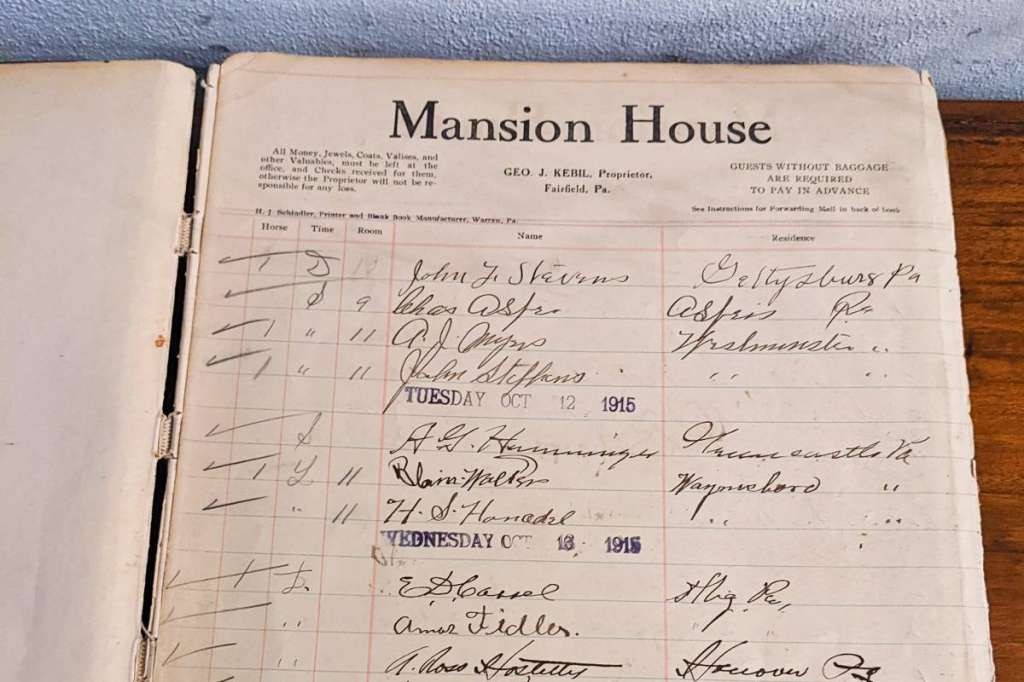 Mansion House
All Money, Jewels, Coats, Valises, and
other Valuables, must be left at the
office, and Checks received for them,
otherwise the Proprietor will not be re-
sponsible for any loss.
GEO. J. KEBIL, Proprietor,
Fairfield, Pa.
GUESTS WITHOUT BAGGAGE
ARE REQUIRED
TO PAY IN ADVANCE
See Instructions for Forwarding Mail in back of book
H. J. Schindler, Printer and Blank Book Manufacturer, Warren, Pa.
Horse Time Room Name Residence
1 D 10 John F. Stevens Gettysburg Pa
S 9 Chas Pa
1 " 11 A. J. Myers Westminster "
1 " 11 John Steffans " "
TUESDAY OCT 12 1915
S A G. Va
1 11 Blain Walters Waynesboro "
" 11 H. S. " "
WEDNESDAY OCT 13 1915
1 E. D. Cassel Pa,
" Amos Fidler. "
" A. Ross Hostetter Hanover Pa